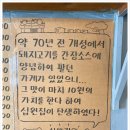 약 70년 전 개성에서
돼지고기를 간장소스에
양념하여 팔던
가게가 있었으니..
그 맛에 마치 10원의
가치를 한다 하여
십원집이 탄생하였다!